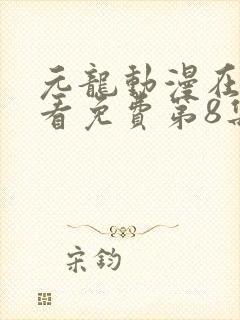 元龍動漫在
看免費第8集
宋鈞